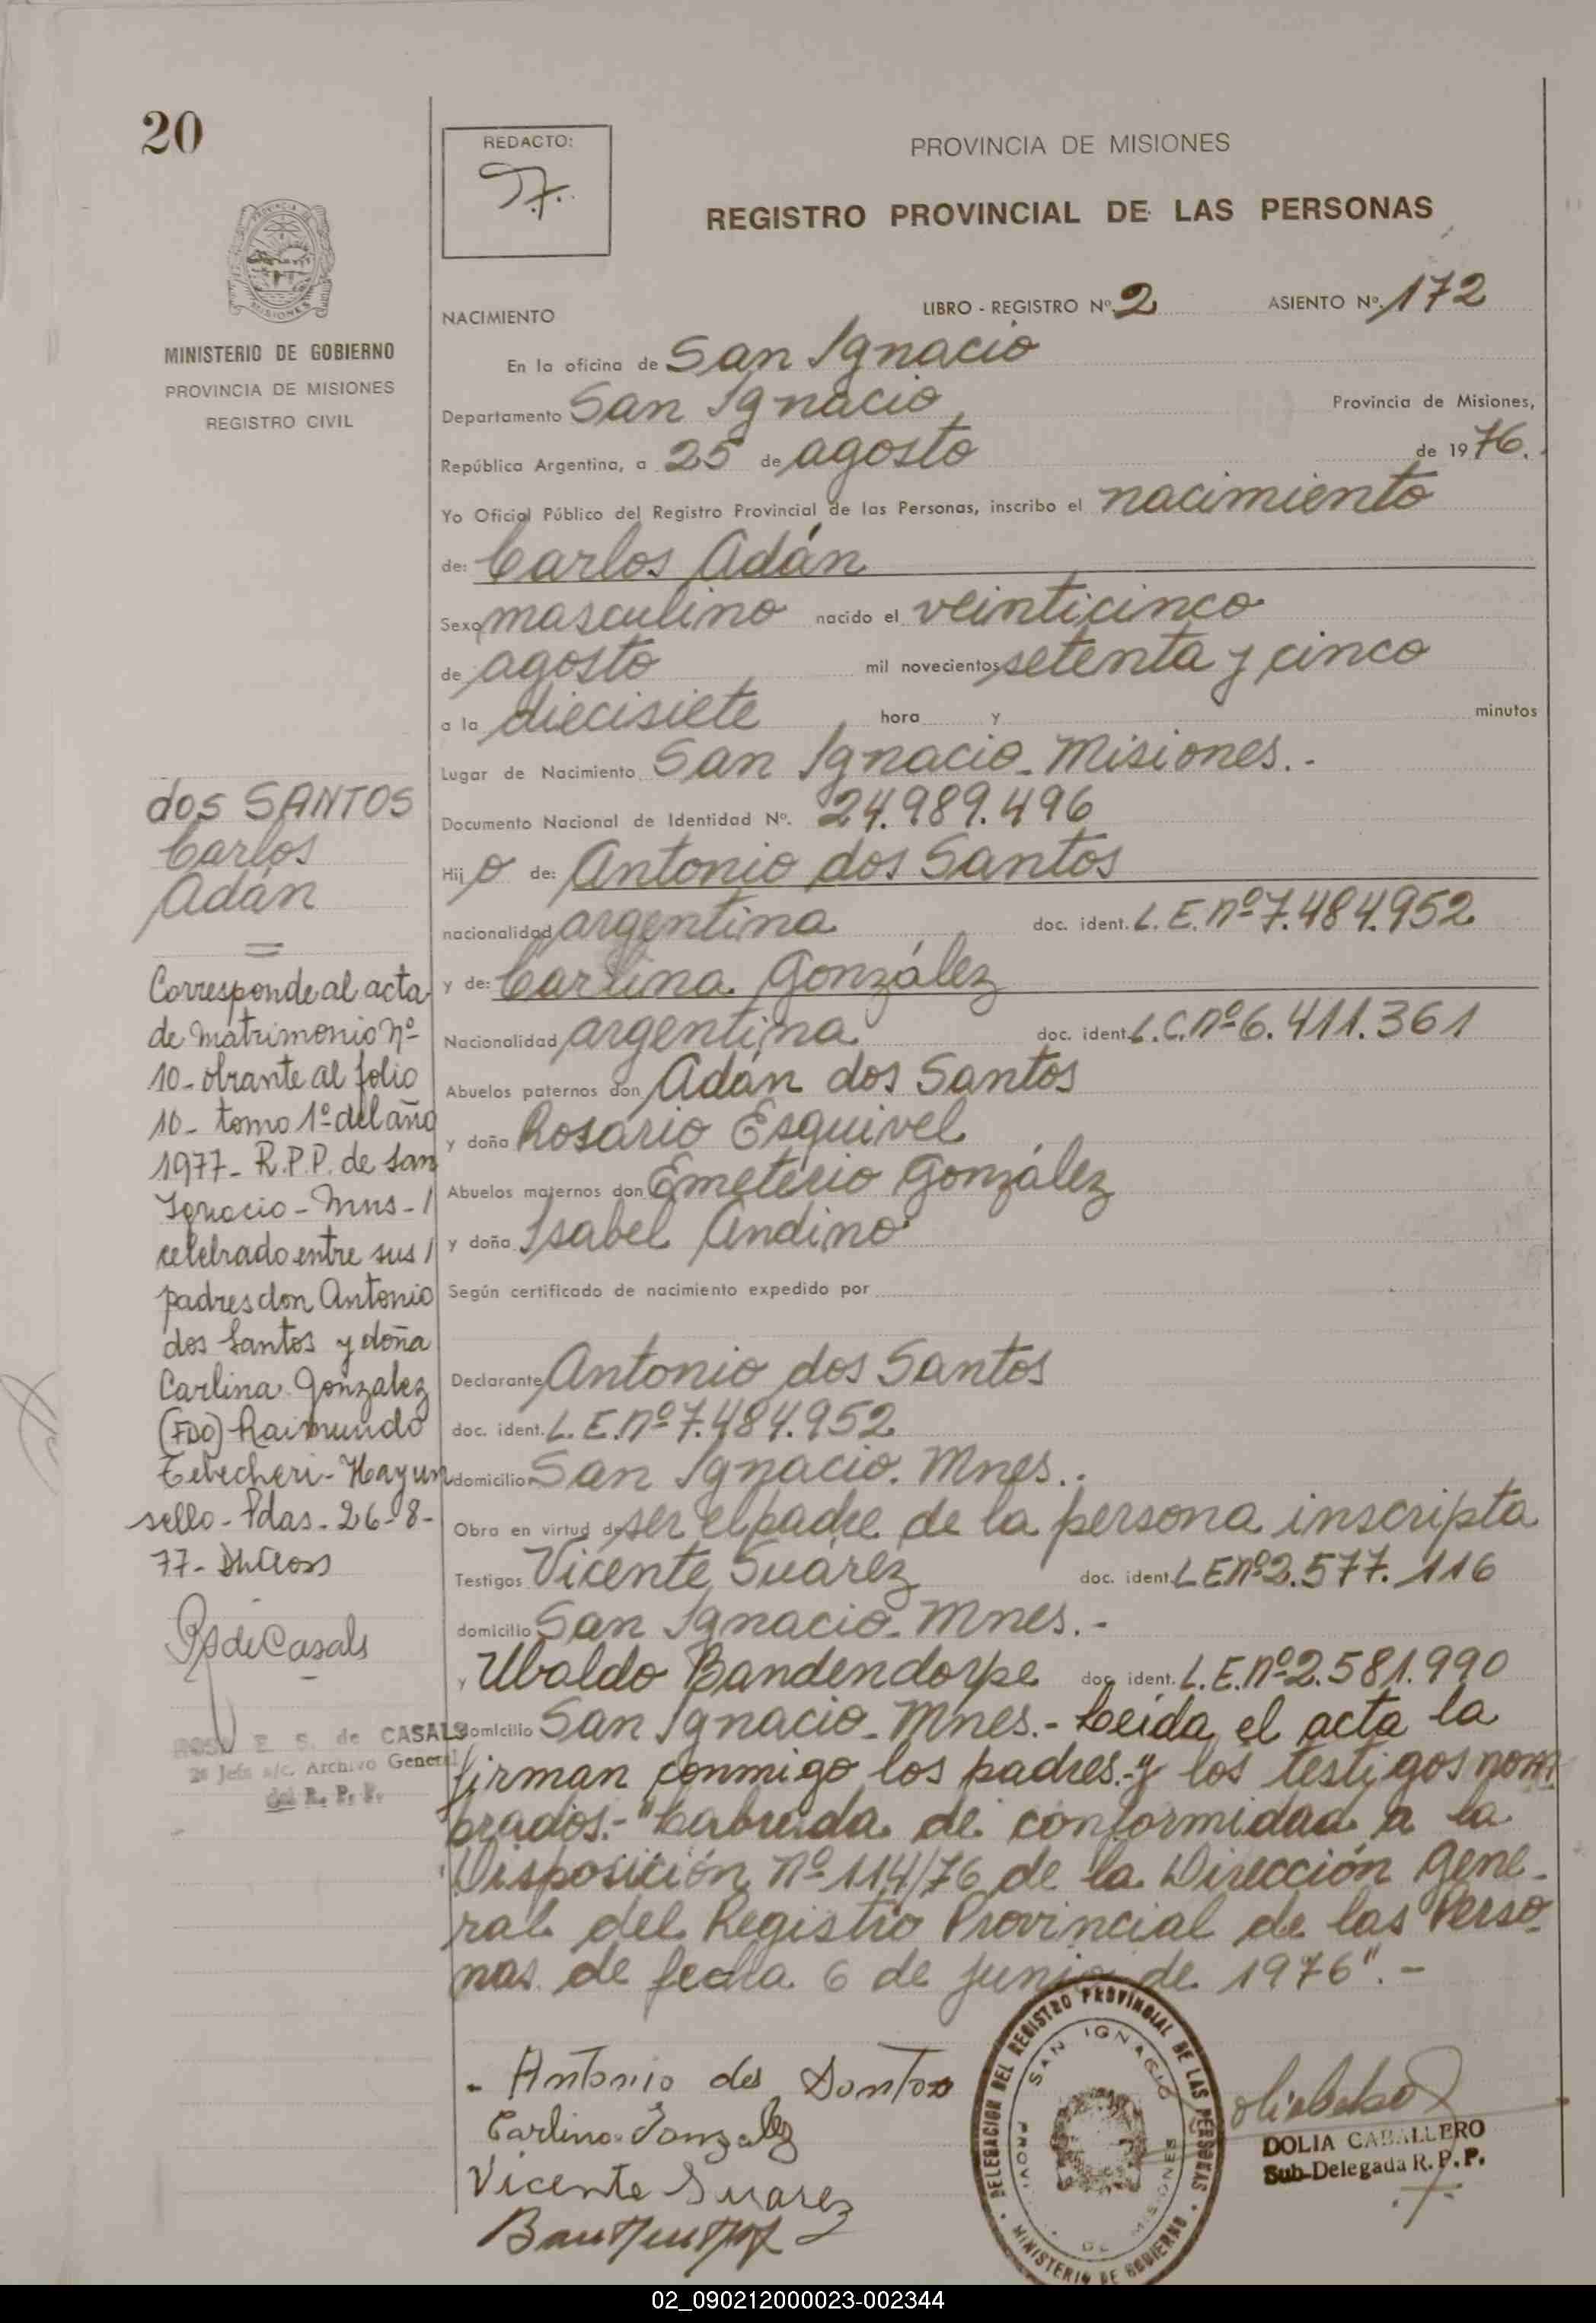 20
REDACTO:
PROVINCIA DE MISIONES
REGISTRO PROVINCIAL DE LAS PERSONAS
MINISTERIO DE GOBIERNO
PROVINCIA DE MISIONES
REGISTRO CIVIL
NACIMIENTO LIBRO - REGISTRO Nº 2 ASIENTO Nº 172
En la oficina de San Ignacio
Departamento San Ignacio, Provincia de Misiones,
República Argentina, a 25 de agosto de 1976.
Yo Oficial Público del Registro Provincial de las Personas, inscribo el nacimiento
de: Carlos Adán
Sexo masculino nacido el veinticinco
de agosto mil novecientos setenta y cinco
a la diecisiete hora y minutos
Lugar de Nacimiento San Ignacio - Misiones.-
Documento Nacional de Identidad Nº. 24.989.496
Hij o de: Antonio dos Santos
nacionalidad argentina doc. ident. L.E.nº 7.484.952
y de: Carlina González
Nacionalidad argentina doc. ident. L.C.nº 6.411.361
Abuelos paternos don Adán dos Santos
y doña Rosario Esquivel
Abuelos maternos don Emeterio González
y doña Isabel Andino
Según certificado de nacimiento expedido por
Declarante Antonio dos Santos
doc. ident. L.E.nº 7.484.952
domicilio San Ignacio. Mnes..
Obra en virtud de ser el padre de la persona inscripta
Testigos Vicente Suárez doc. ident. L E nº 2.577.116
domicilio San Ignacio - Mnes.-
y Ubaldo Bandendorpe doc. ident. L.E.nº 2.581.990
domicilio San Ignacio - Mnes.- Leída el acta la
firman conmigo los padres.-y los testigos nom
brados.- "Labrada de conformidad a la
Disposición nº 114/76 de la Dirección Gene-
ral del Registro Provincial de las Perso-
nas de fecha 6 de junio de 1976".-
dos SANTOS
Carlos
Adán
=
Corresponde al acta
de matrimonio nº
10- obrante al folio
10- tomo 1º del año
1977- R.P.P. de San
Ignacio - Mns - /
celebrado entre sus /
padres don Antonio
dos Santos y doña
Carlina Gonzalez
(FDO) Raimundo
Tebecheri - Hay un
sello - Pdas - 26-8-
77-
de Casals
E. S. de CASALS
2ª Jefa a/c. Archivo General
del R. P. P.
- Antonio dos Santos
Carlina Gonzalez
Vicente Suarez
DELEGACION DEL REGISTRO PROVINCIAL DE LAS PERSONAS
SAN IGNACIO
PROV. DE MISIONES
MINISTERIO DE GOBIERNO
DOLIA CABALLERO
Sub-Delegada R. P. P.
02_090212000023-002344